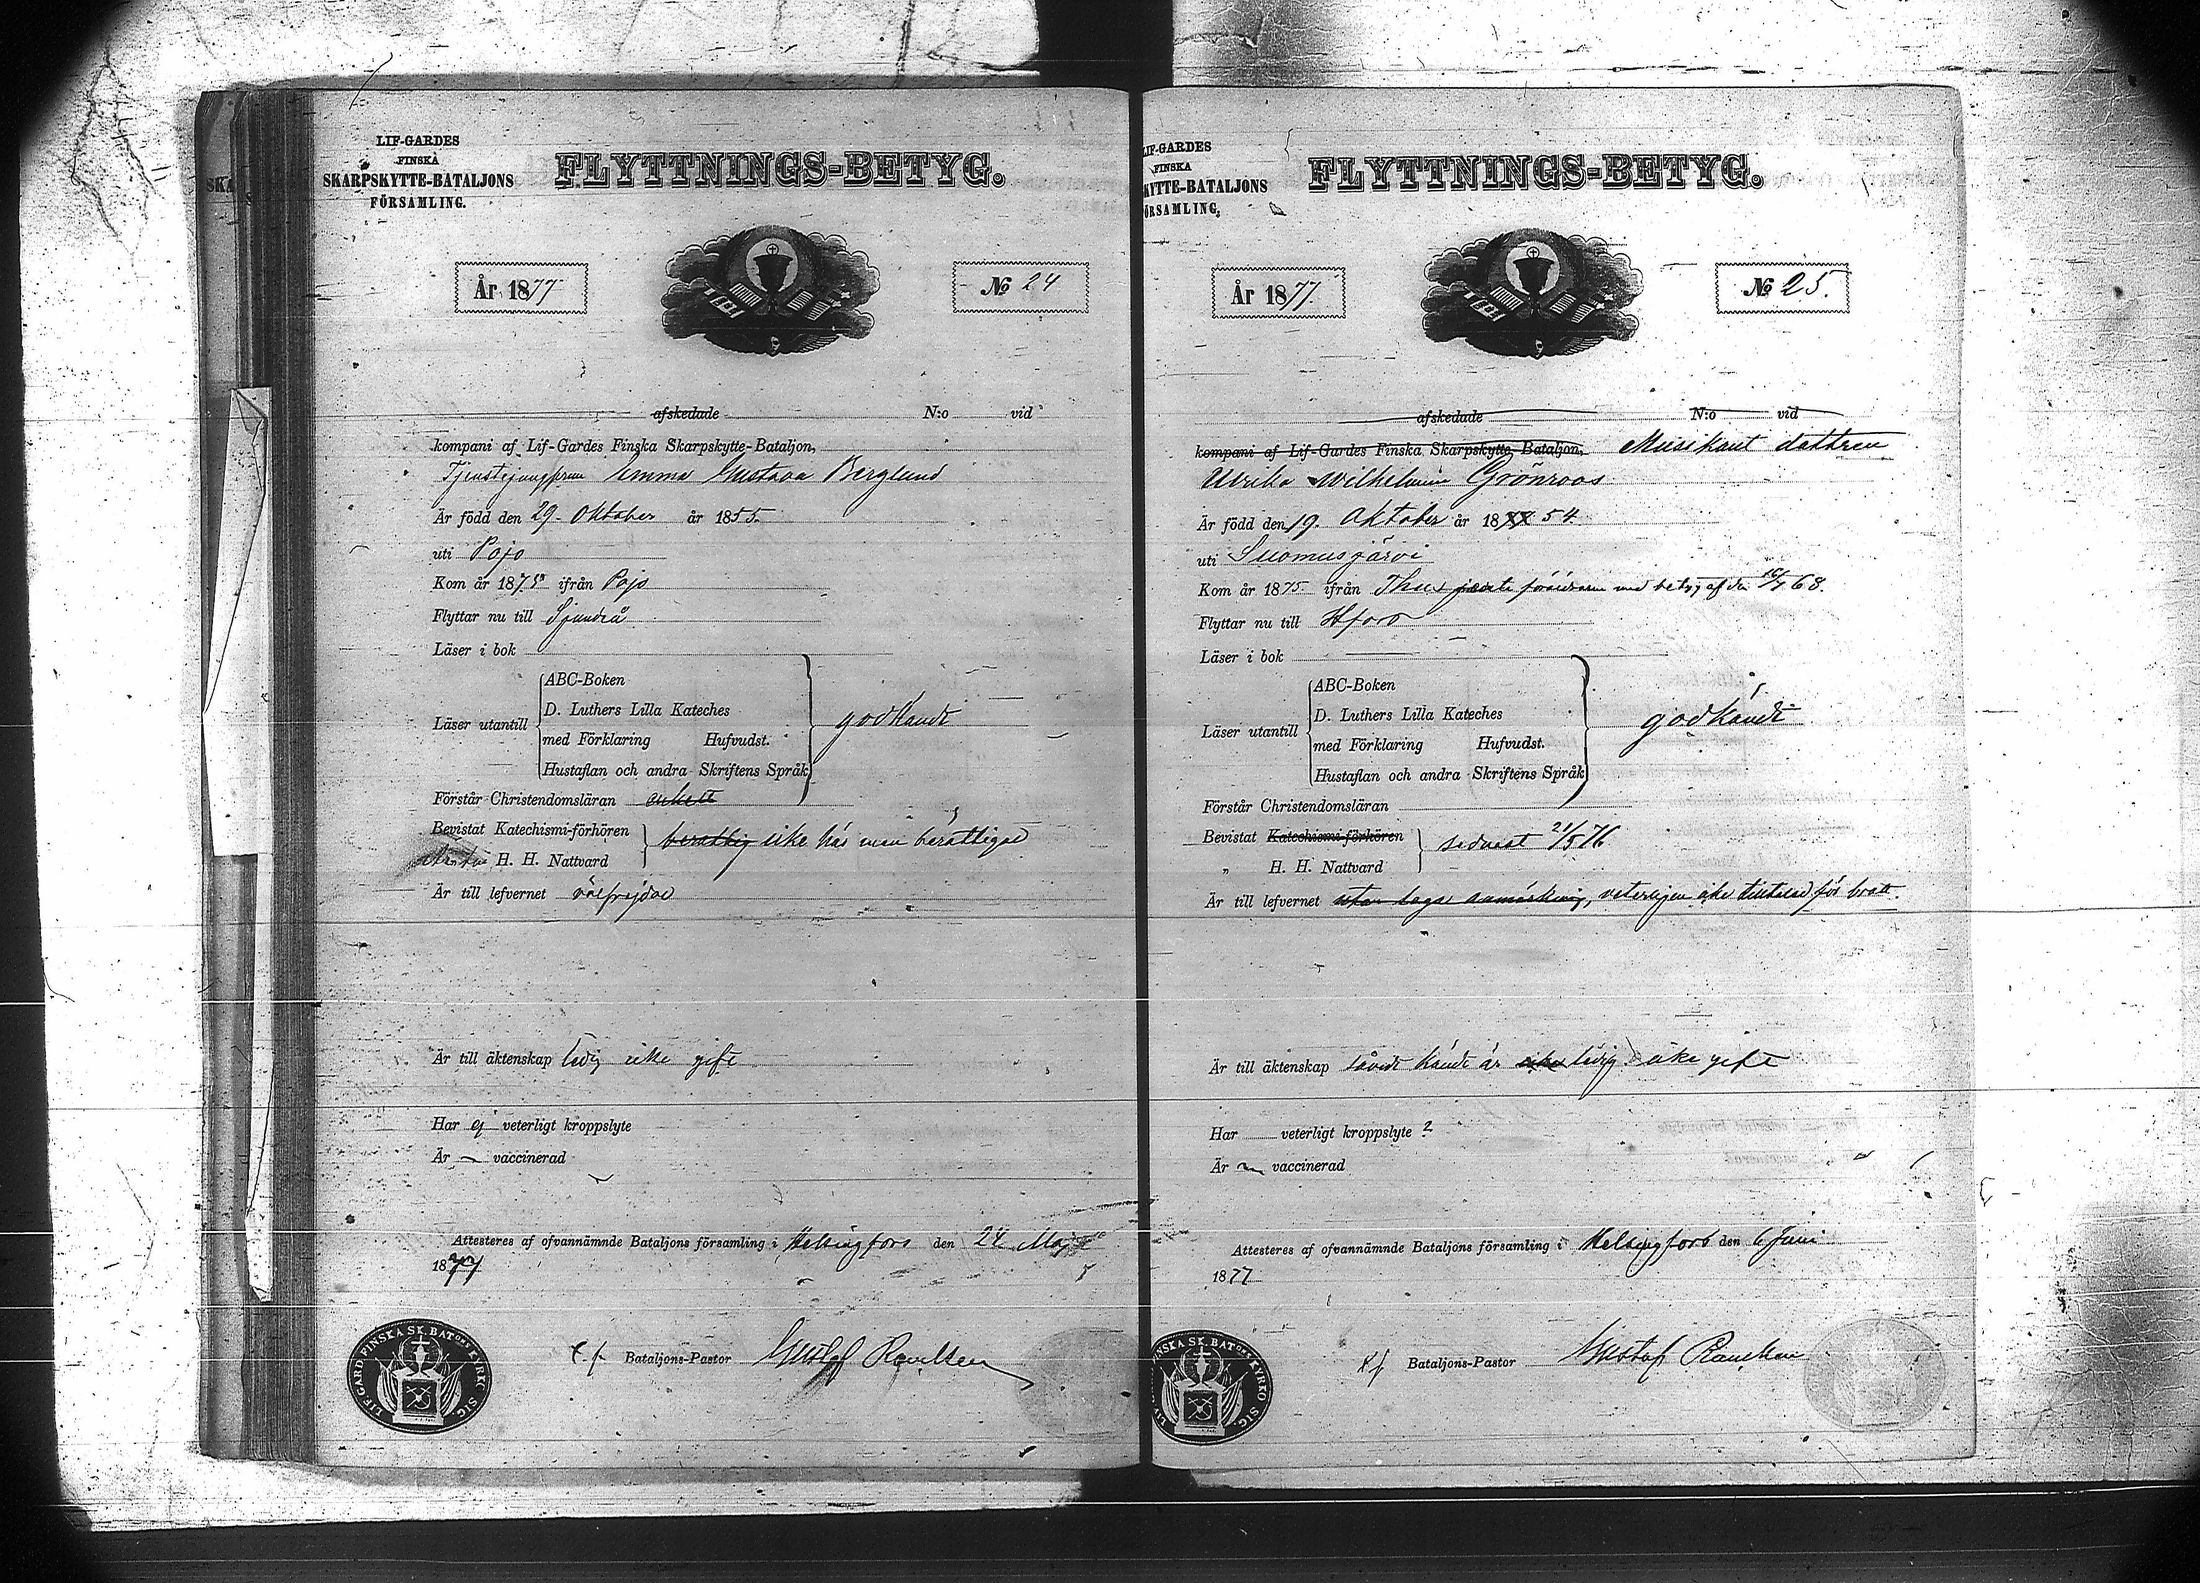 LIF-GARDES
FINSKA
SKARPSKYTTE-BATALJONS
FÖRSAMLING.
FLYTTNINGS-BETYG.
År 1877
No 24
afskedade N:o vid
kompani af Lif-Gardes Finska Skarpskytte-Bataljon,
Tjenstejungfrun Emma Gustava Berglund
Är född den 29. Oktober år 1855.
uti Pojo
Kom år 1875 ifrån Pojo
Flyttar nu till Sjundeå
Läser i bok
Läser utantill
ABC-Boken
D. Luthers Lilla Kateches
med Förklaring Hufvudst.
Hustaflan och andra Skriftens Språk
godkändt
Förstår Christendomsläran enkelt
Bevistat Katechismi-förhören
H. H. Nattvard
icke här men berättigad
Är till lefvernet välfrejdad
Är till äktenskap ledig icke gift
Har ej veterligt kroppslyte
Är vaccinerad
Attesteres af ofvannämnde Bataljons församling i Helsingfors den 24 Maj
1877
LIF. GARD. FINSKA SK. BATONS KYRKO SIG.
t.f. Bataljons-Pastor Gustaf
LIF-GARDES
FINSKA
KYTTE-BATALJONS
ÖRSAMLING.
FLYTTNINGS-BETYG.
År 1877.
No 25.
afskedade N:o vid
kompani af Lif-Gardes Finska Skarpskytte-Bataljon, Musikant dottren
Ulrika Wilhelmina Grönroos
Är född den 19. Oktober år 18 54.
uti Suomusjärvi
Kom år 1875 ifrån föräldrarne med betyg af den 16/7 68.
Flyttar nu till Hfors
Läser i bok
Läser utantill
ABC-Boken
D. Luthers Lilla Kateches
med Förklaring Hufvudst.
Hustaflan och andra Skriftens Språk
godkändt
Förstår Christendomsläran
Bevistat Katechismi-förhören
„ H. H. Nattvard
sednast 21/5 76
Är till lefvernet utan laga anmärkning, veterligen icke tilltalad för brott.
Är till äktenskap såvidt kändt är icke ledig icke gift
Har veterligt kroppslyte ?
Är vaccinerad
Attesteres af ofvannämnde Bataljons församling i Helsingfors den 6 Juni
1877
FINSKA SK. BATONS KYRKO SIG.
t.f. Bataljons-Pastor Gustaf